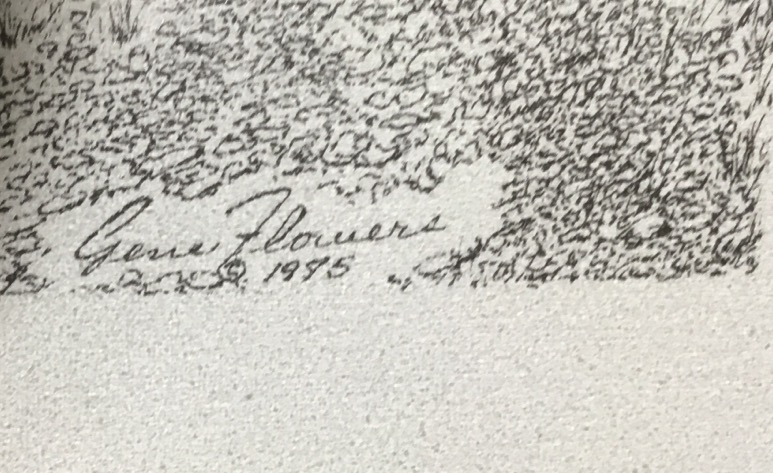 Gene Flowers
© 1995